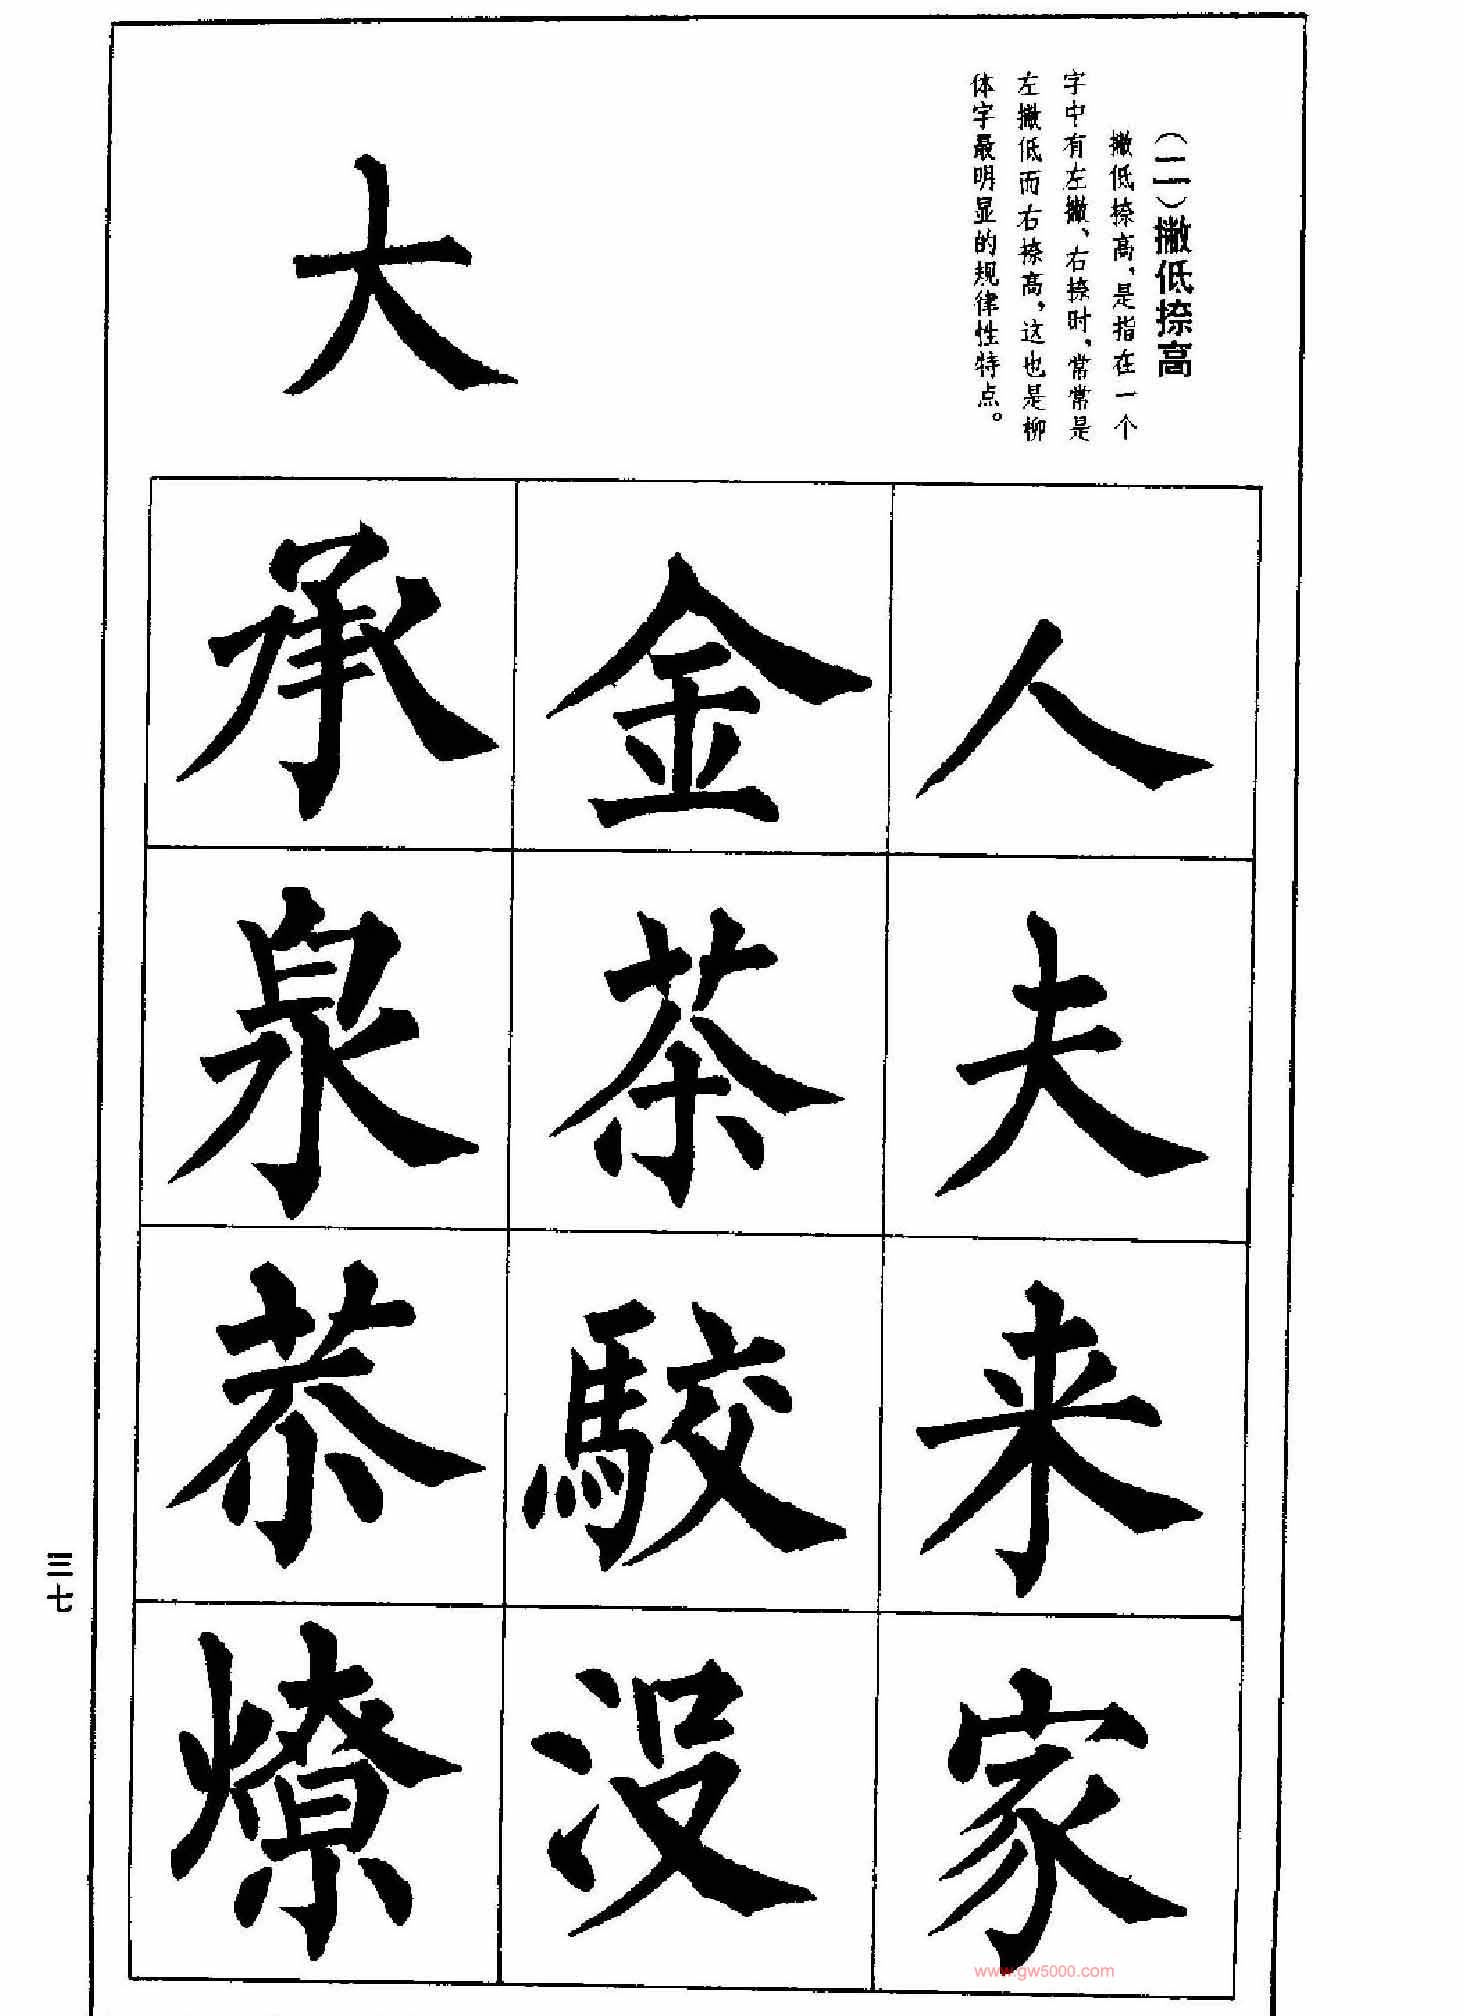 (二)撇低捺高
撇低捺高,是指在一个
字中有左撇、右捺时,常常是
左撇低而右捺高,这也是柳
体字最明显的规律性特点。
大
人
夫
来
家
金
茶
駮
没
承
泉
恭
燎
三七
www.gw5000.com